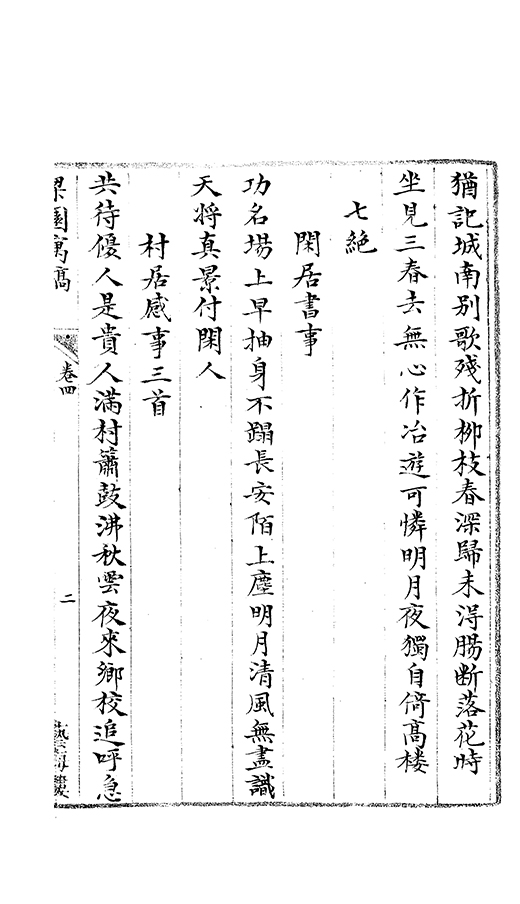 猶記城南别歌殘折柳枝春深歸未得腸斷落花時
坐見三春去無心作冶遊可憐明月夜獨自倚高楼
七絶
閑居書事
功名場上早抽身不蹋長安陌上塵明月清風無盡識
天將真景付閑人
村居感事三首
共待優人是貴人滿村簫鼓沸秋雲夜來鄉校追呼急
梁園寓稿
卷四
二